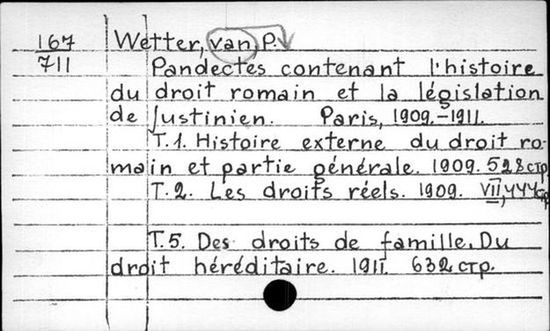 167
711
Wetter, van P.
Pandectes contenant l'histoire
du droit romain et la législation
de Justinien. Paris, 1909.-1911.
T.1. Histoire externe du droit ro-
main et partie générale. 1909. 528 стр.
T.2. Les droits réels. 1909. VII, 444 стр
T.5. Des droits de famille. Du
droit héréditaire. 1911. 632 стр.